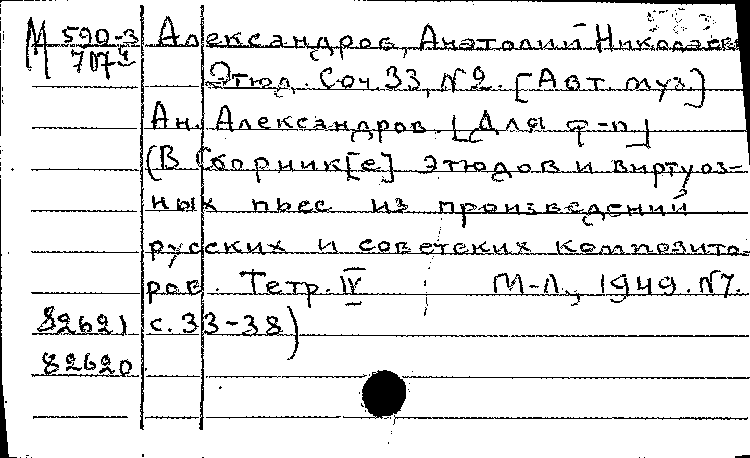 М 590-3 Александров, Анатолий Николаеви
707
Этюд. Соч. 33, № 2. [Авт. муз.]
Ан. Александров. [Для ф-п]
(В Сборник[е] этюдов и виртуоз-
ных пьес из произведений
русских и советских композито-
ров. Тетр. IV М-Л., 1949. №7.
82621 с. 33-38)
82620